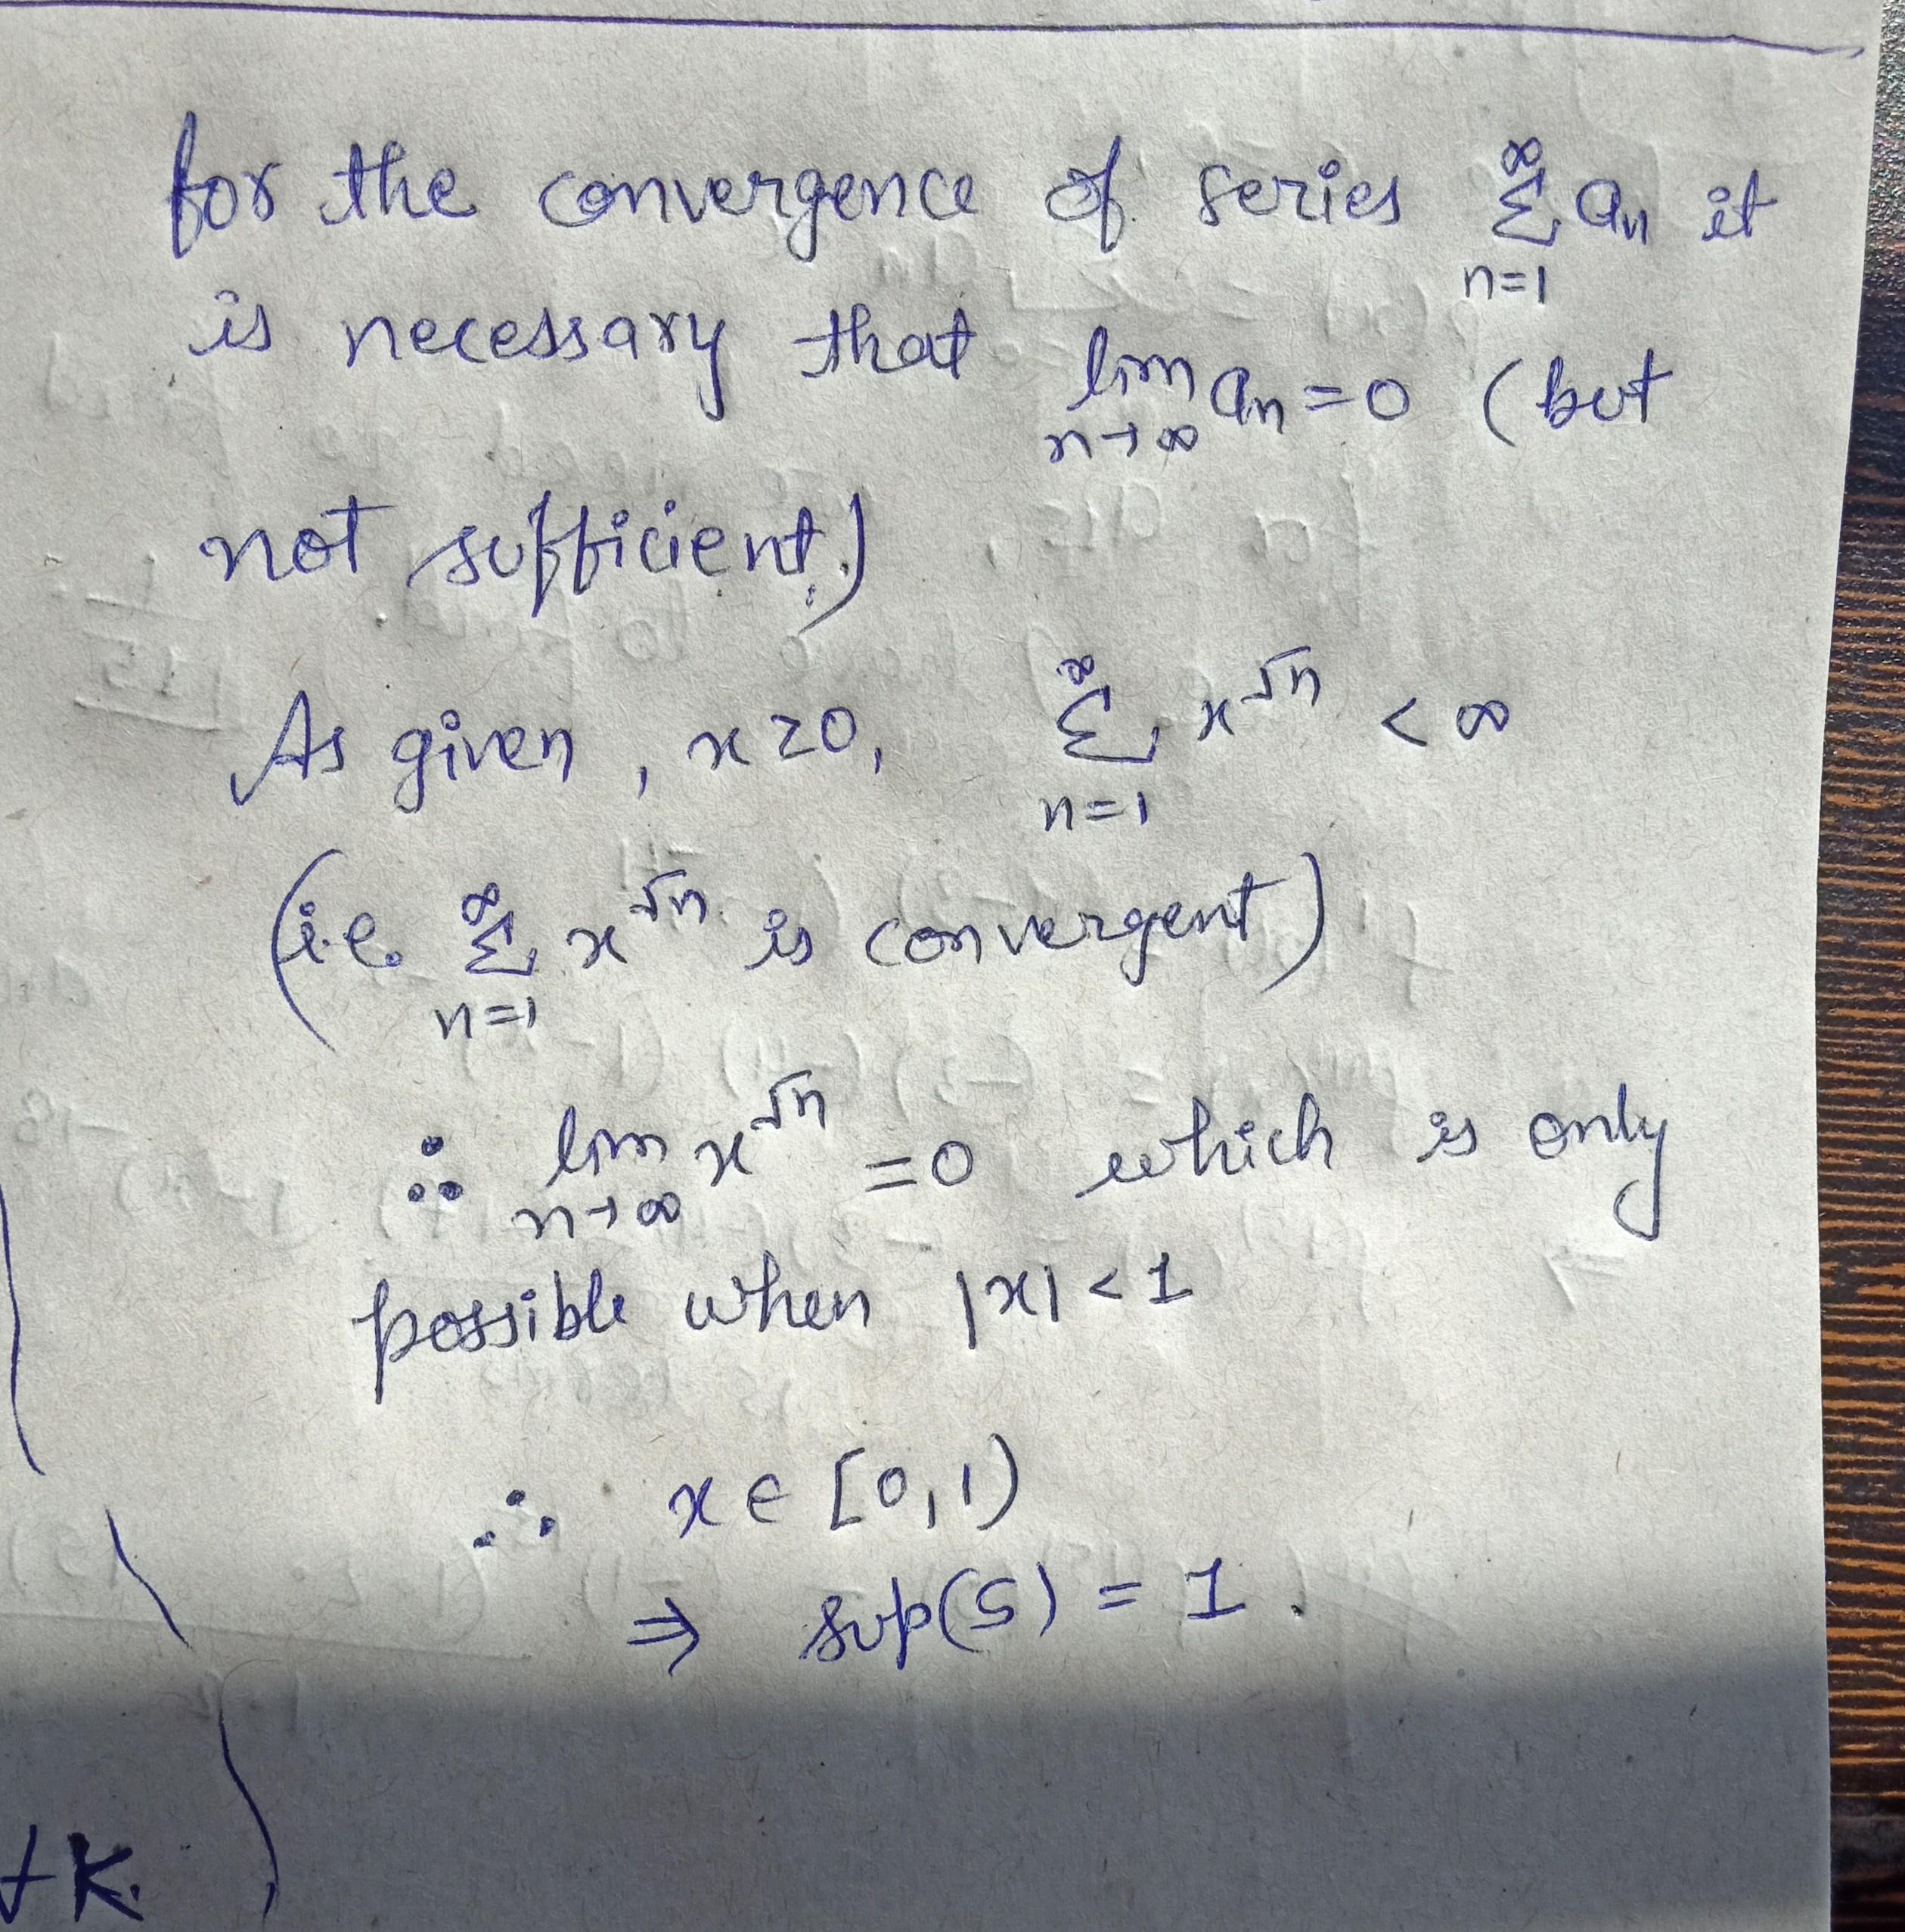 for the convergence of series ∞Σn=1 an it
is necessary that lim n→∞ an = 0 (but
not sufficient.)
As given, x≥0, ∞Σn=1 x^√n < ∞
(i.e. ∞Σn=1 x^√n is convergent)
∴ lim n→∞ x^√n = 0 which is only
possible when |x| < 1
∴ x ∈ [0,1)
⇒ sup(S) = 1.
+K.